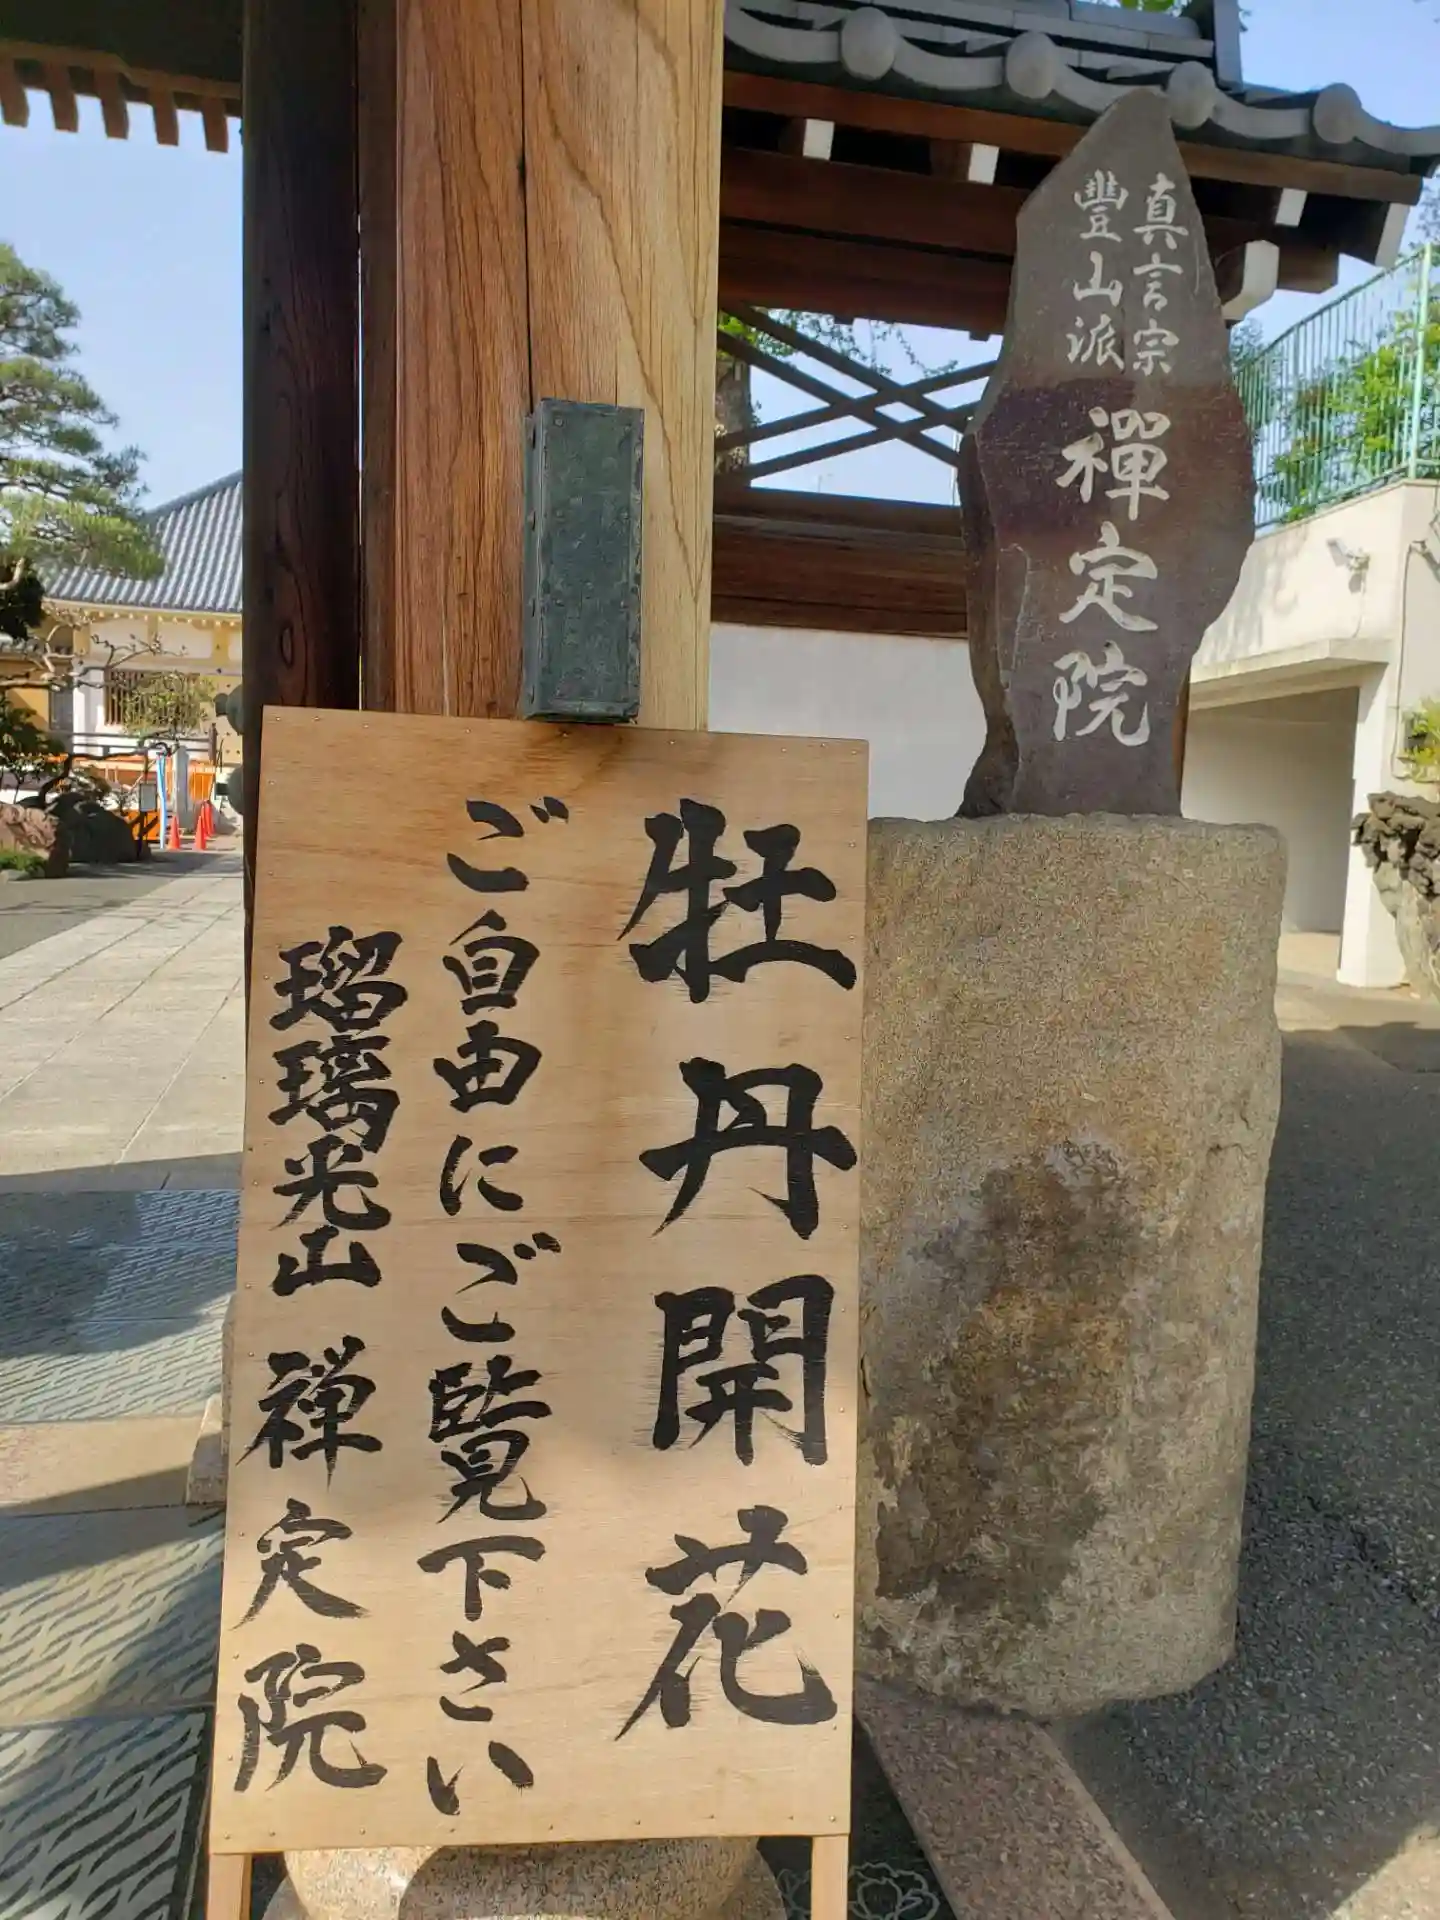 牡丹開花
ご自由にご覧下さい
瑠璃光山 禅定院
真言宗
豐山派
禪定院